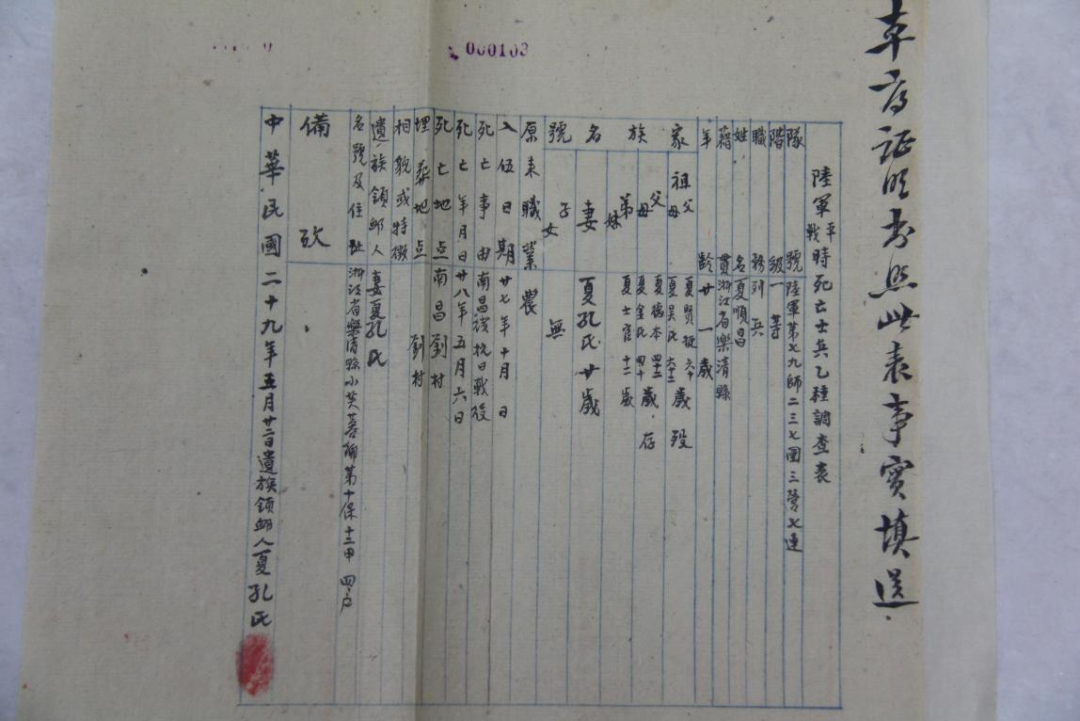 000103
陸軍平戰時死亡士兵乙種調查表
隊號 陸軍第七九師二三七團三營七連
階級 一等
職務 列兵
姓名 夏順昌
籍貫 浙江省樂清縣
年齡 廿一歲
家族名號
祖父母 夏吳氏 六十二歲 歿
父母 夏德本 四十二歲 夏金氏 四十歲 存
弟妹 十二歲
妻 夏孔氏 廿歲
子女 無
原來職業 農
入伍日期 廿七年十月 日
死亡事由 南昌抗日戰役
死亡年月日 廿八年五月六日
死亡地点 南昌劉村
埋葬地点 劉村
相貌或特徵
遺族領卹人名號及住址 妻夏孔氏 浙江省樂清縣小芙蓉鄉第十保十二甲四户
備攷
中華民國二十九年五月廿二日遺族領卹人夏孔氏